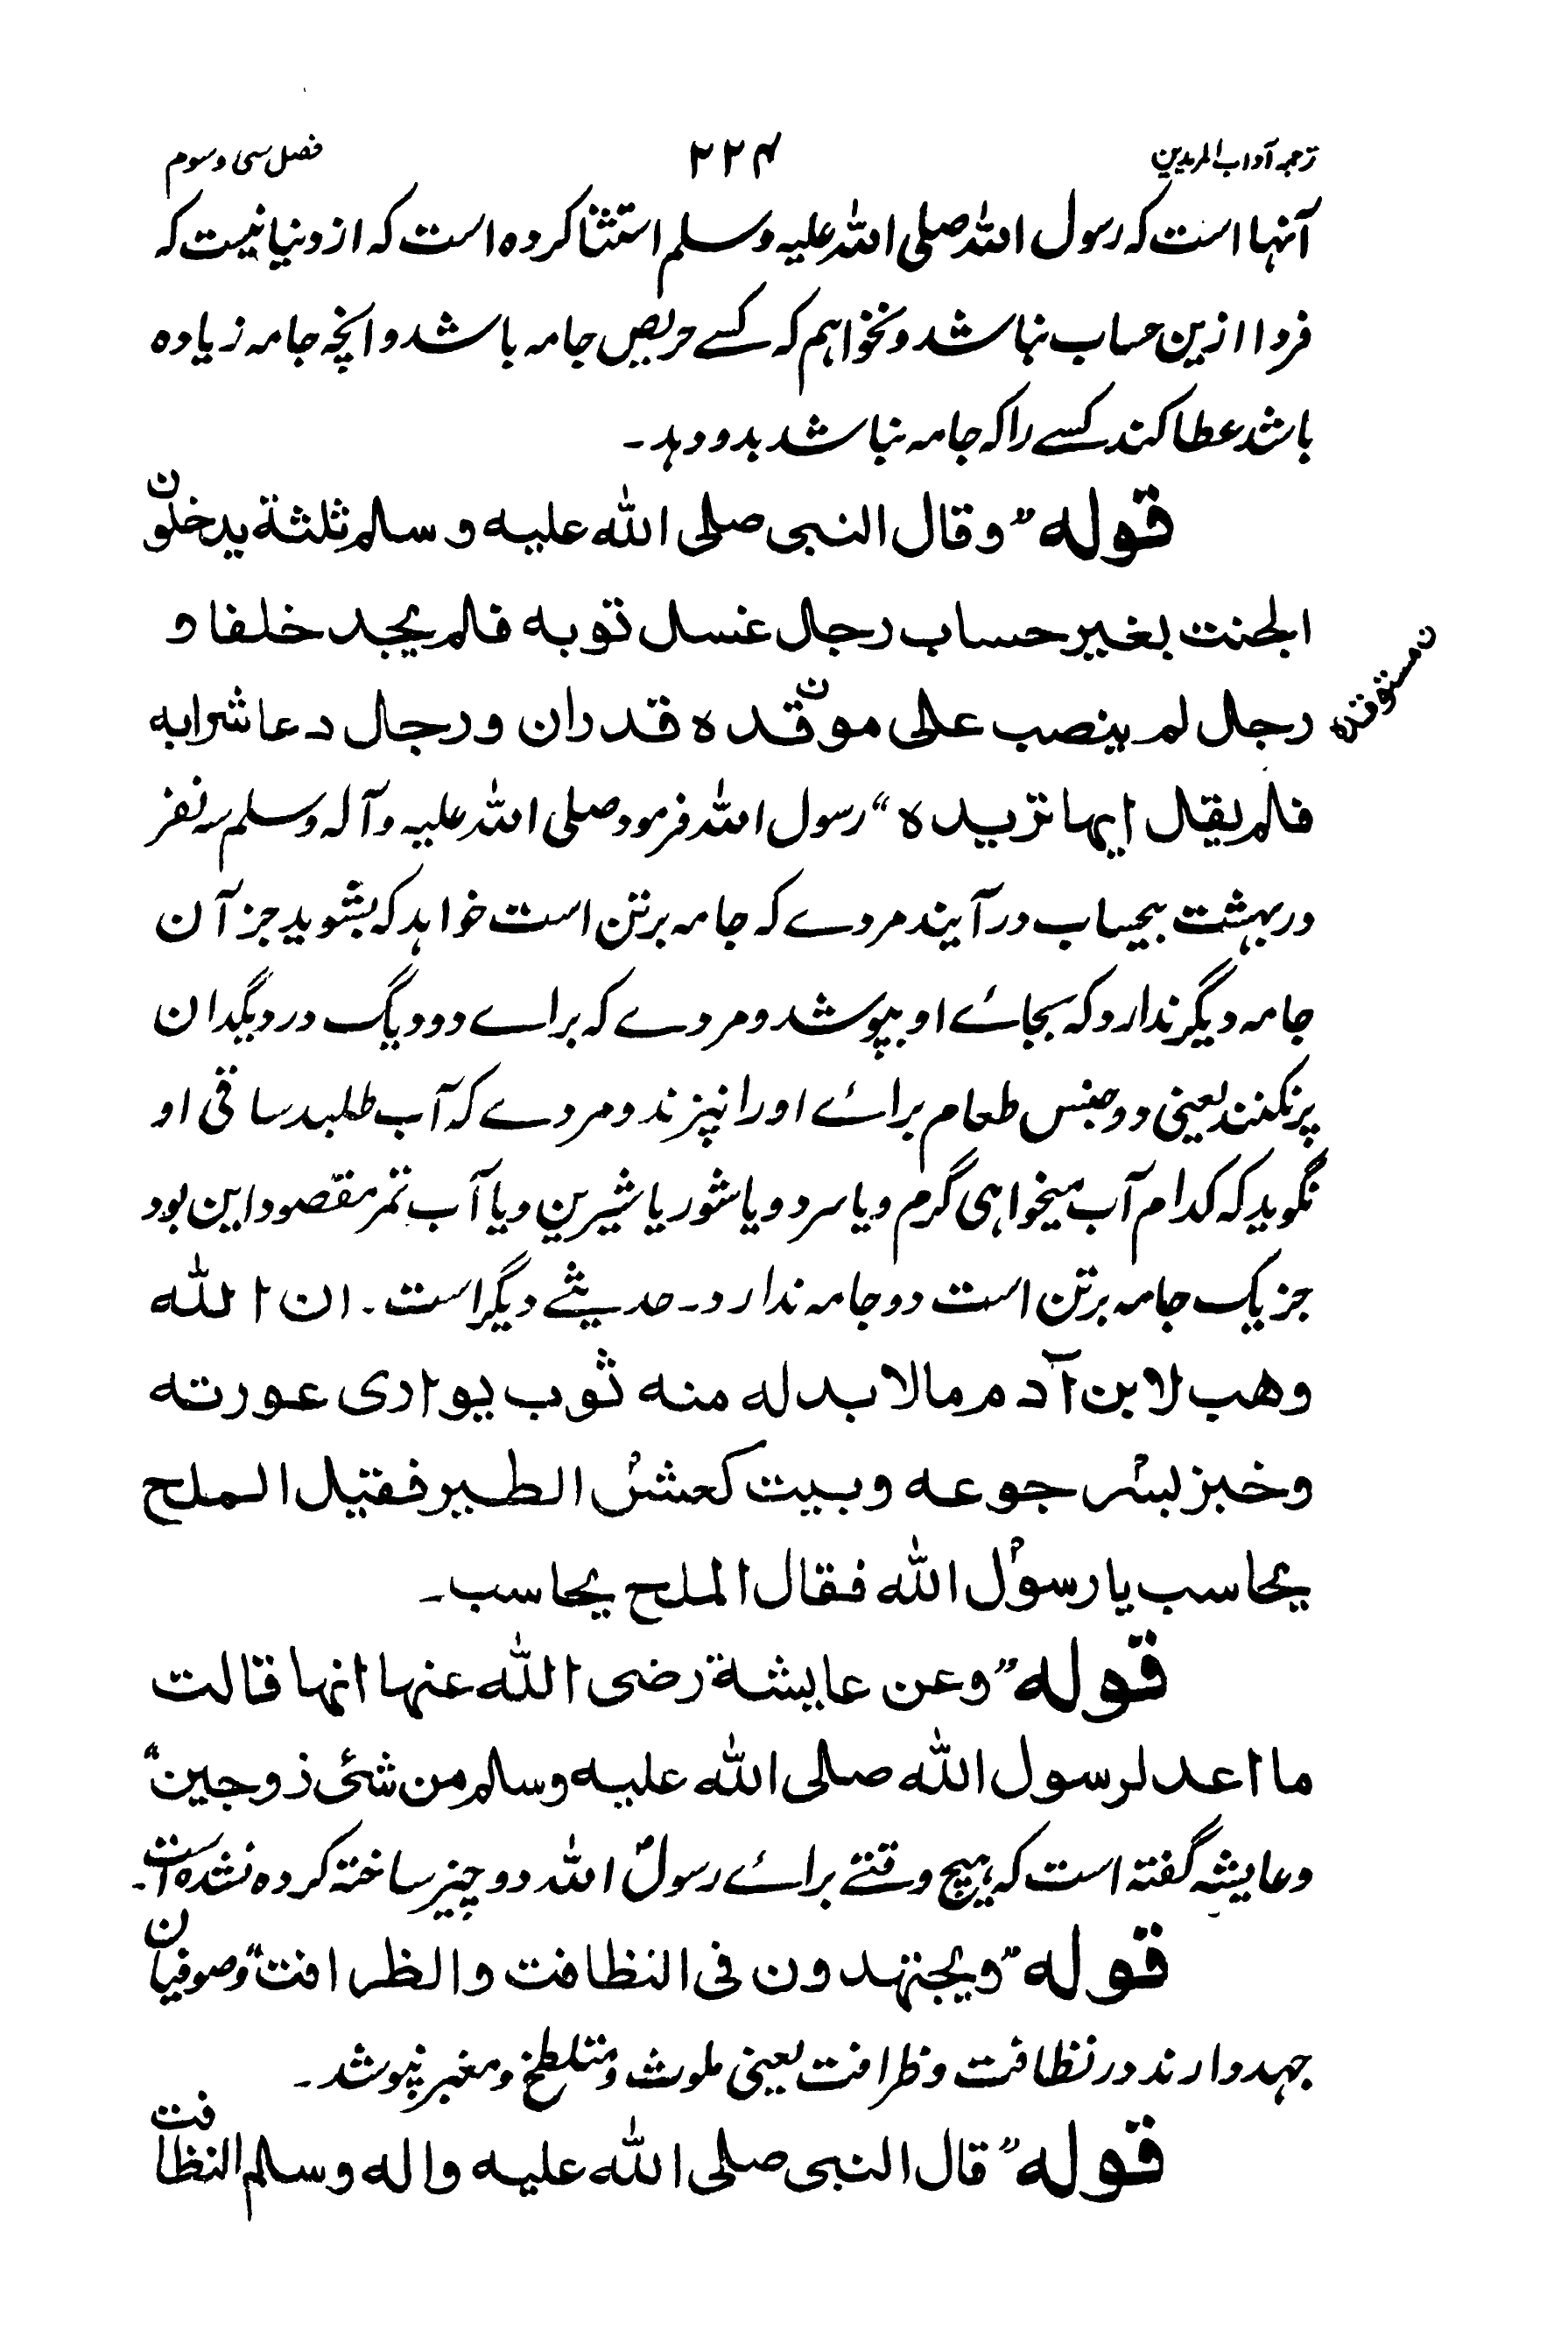 ترجمہ آداب المریدین ۲۲۴ فصل سی و سوم
آنہا است کہ رسول اللہ صلی اللہ علیہ وسلم استثنا کردہ است کہ از دنیا نیست کہ
فردا ازین حساب نباشد ونخواہم کہ کسے حریص جامہ باشد وانچہ جامہ زیادہ
باشد عطا کند کسے را کہ جامہ نباشد بدو دہد۔
قوله ”وقال النبى صلى الله عليه وسلم ثلثة يدخلون
الجنت بغير حساب رجل غسل ثوبه فلم يجد خلفا و
رجل لم ينصب على موقده قدران ورجل دعا شرابه
ن مستوقدہ
فلم يقال ايها تريده“ رسول اللہ فرمود صلی اللہ علیہ وآلہ وسلم سہ نفر
در بہشت بیحساب در آیند مردے کہ جامہ برتن است خواہد کہ بشوید جز آن
جامہ دیگر ندارد کہ بجائے او بپوشد ومردے کہ براے دو دیگ در دیگدان
پر نکنند یعنی دو جنس طعام برائے او را نپزند ومردے کہ آب طلبد ساقی او
نگوید کہ کدام آب میخواہی گرم ویا سرد ویا شور یا شیرین ویا آب تمر مقصود این بود
جز یک جامہ برتن است دو جامہ ندارد۔ حدیثے دیگر است۔ ان الله
وهب لابن آدم مالا بد له منه ثوب يوارى عورته
وخبز يسد جوعه وبيت كعش الطير فقيل الملح
يحاسب يا رسول الله فقال الملح يحاسب۔
قوله ”وعن عايشة رضى الله عنها انها قالت
ما اعد لرسول الله صلى الله عليه وسلم من شئى زوجين“
وعایشہ گفتہ است کہ ہیچ وقتے برائے رسول اللہ دو چیز ساختہ کردہ نشدہ است۔
قوله ”ويجتهدون فى النظافت والظرافت“ وصوفیان
جہد دارند در نظافت وظرافت یعنی ملوث ومتلطخ ومغبر نپوشد۔
قوله ”قال النبى صلى الله عليه واله وسلم النظافت